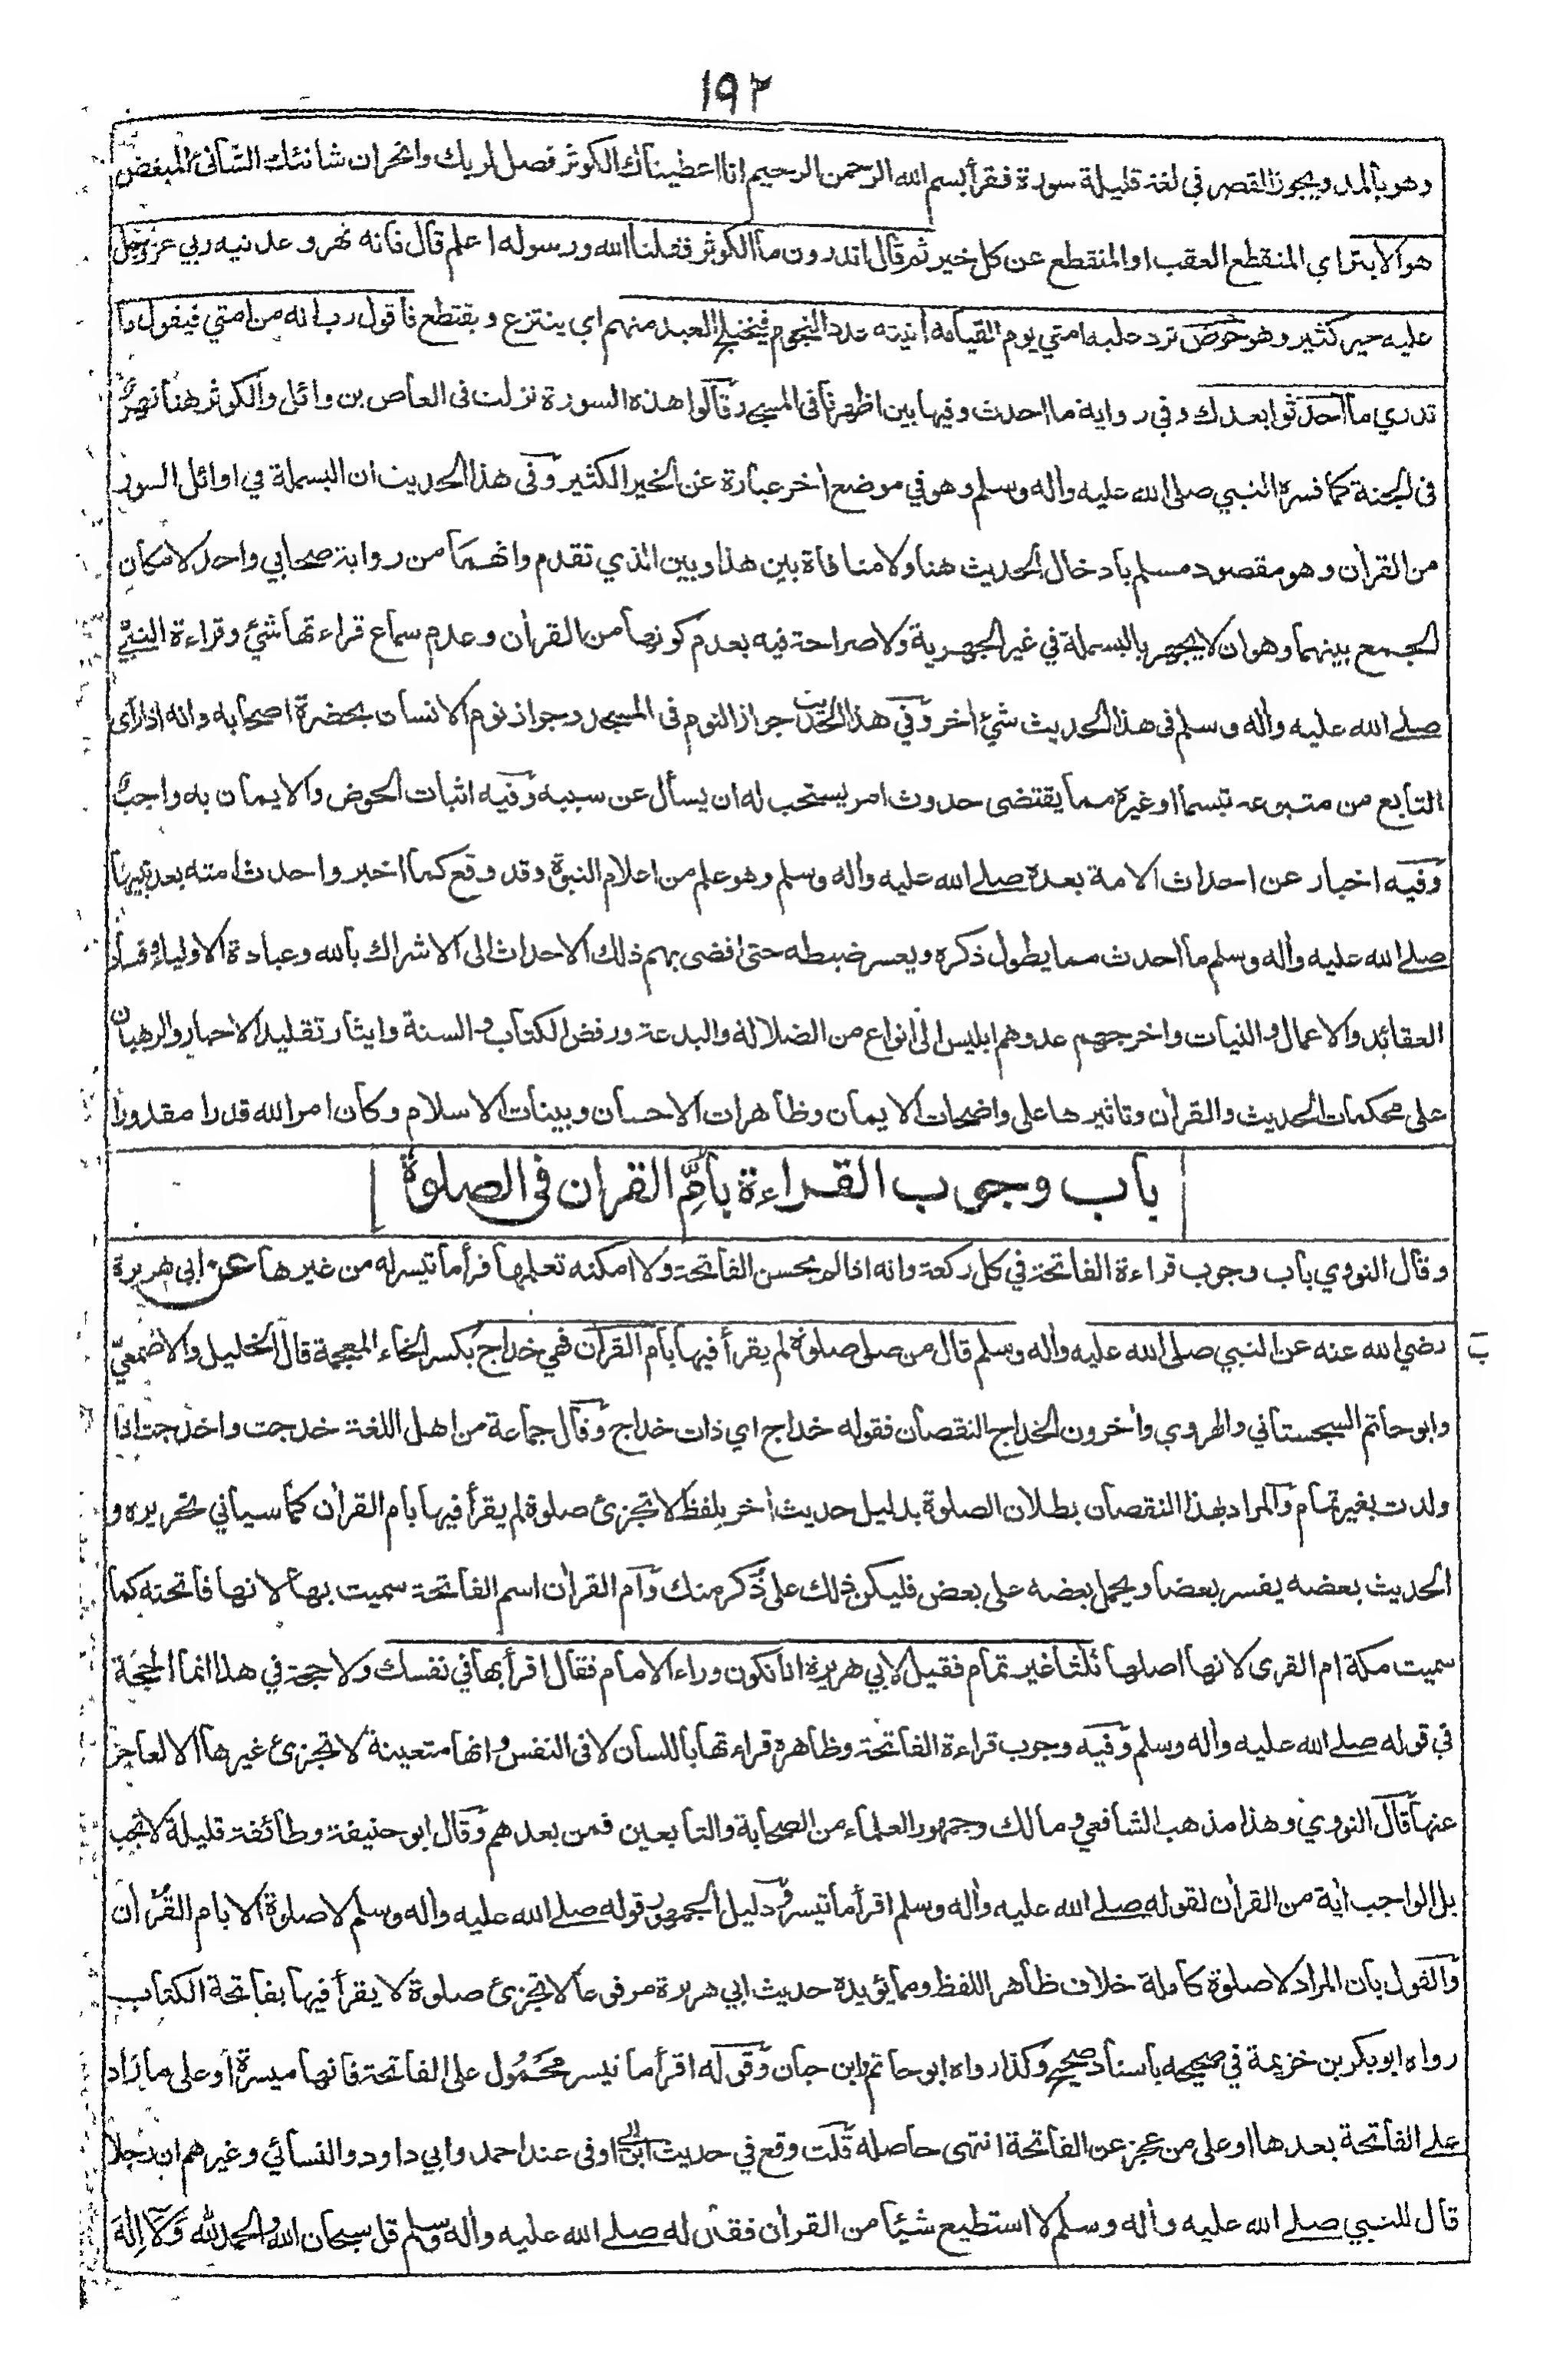 ١٩٢
وهو بالمد ويجوز القصر في لغة قليلة سورة فقرأ بسم الله الرحمن الرحيم انا اعطيناك الكوثر فصل لربك وانحر ان شانئك الشانئ المبغض
هو الابتر اي المنقطع العقب او المنقطع عن كل خير ثم قال اتدرون ما الكوثر فقلنا الله ورسوله اعلم قال فانه نهر وعدنيه ربي عز وجل
عليه خير كثير وهو حوض ترد عليه امتي يوم القيامة أنيته عدد النجوم فيختلج العبد منهم اي ينتزع ويقتطع فاقول رب انه من امتي فيقول ما
تدري ما احدثوا بعدك وفي رواية ما احدث وفيها بين اظهرنا فى المسجد وقالوا هذه السورة نزلت فى العاص بن وائل والكوثر هنا نهر
فى الجنة كما فسره النبي صلى الله عليه وأله وسلم وهو في موضع أخر عبارة عن الخير الكثير وفى هذا الحديث ان البسملة في اوائل السور
من القرأن وهو مقصود مسلم بادخال الحديث هنا ولا منافاة بين هذا وبين الذي تقدم وانهما من رواية صحابي واحد لامكان
الجمع بينهما وهو ان لا يجهر بالبسملة في غير الجهرية ولا صراحة فيه بعدم كونها من القرأن وعدم سماع قراءتها شئ وقراءة النبي
صلے الله عليه وأله وسلم فى هذا الحديث شئ اخر وفي هذا الحديث جواز النوم فى المسجد وجواز نوم الانسان بحضرة اصحابه وانه اذا رأى
التابع من متبوعه تبسما او غيره مما يقتضى حدوث امر يستحب له ان يسأل عن سببه وفيه اثبات الحوض والايمان به واجب
وفيه اخبار عن احداث الامة بعده صلے الله عليه وأله وسلم وهو علم من اعلام النبوة وقد وقع كما اخبر واحدث امته بعد نبيها
صلے الله عليه وأله وسلم ما احدث مما يطول ذكره ويعسر ضبطه حتى افضى بهم ذلك الاحداث الى الاشراك بالله وعبادة الاولياء وفساد
العقائد والاعمال والنيات واخرجهم عدوهم ابليس الى انواع من الضلالة والبدعة ورفض الكتاب والسنة وايثار تقليد الاحبار والرهبان
على محكمات الحديث والقرأن وتاثيرها على واضحات الايمان وظاهرات الاحسان وبينات الاسلام وكان امر الله قدرا مقدورا
باب وجوب القراءة بأم القران فى الصلوة
وقال النووي باب وجوب قراءة الفاتحة في كل ركعة وانه اذا لم يحسن الفاتحة ولا امكنه تعلمها قرأ ما تيسر له من غيرها عن ابى هريرة
رضي الله عنه عن النبي صلى الله عليه وأله وسلم قال من صلى صلوة لم يقرأ فيها بام القرأن فهي خداج بكسر الخاء المعجمة قال الخليل والاصمعي
وابو حاتم السجستاني والهروي وأخرون الخداج النقصان فقوله خداج اي ذات خداج وقال جماعة من اهل اللغة خدجت واخدجت اذا
ولدت بغير تمام والمراد بهذا النقصان بطلان الصلوة بدليل حديث أخر بلفظ لا تجزئ صلوة لم يقرأ فيها بام القرأن كما سياتي تحريره و
الحديث بعضه يفسر بعضا ويحمل بعضه على بعض فليكن ذلك على ذكر منك وام القرأن اسم الفاتحة سميت بها لانها فاتحته كما
سميت مكة ام القرى لانها اصلها ثلثا غير تمام فقيل لابي هريرة انا نكون وراء الامام فقال اقرأ بها في نفسك ولا حجة في هذا انما الحجة
في قوله صلے الله عليه وأله وسلم وفيه وجوب قراءة الفاتحة وظاهره قراءتها باللسان لا فى النفس وانها متعينة لا تجزئ غيرها الا لعاجز
عنها قال النووي وهذا مذهب الشافعي ومالك وجمهور العلماء من الصحابة والتابعين فمن بعدهم وقال ابو حنيفة وطائفة قليلة لا تجب
بل الواجب أية من القرأن لقوله صلے الله عليه وأله وسلم اقرأ ما تيسر ودليل الجمهور قوله صلے الله عليه وأله وسلم لا صلوة الا بام القرأن
والقول بان المراد لا صلوة كاملة خلاف ظاهر اللفظ ومما يؤيده حديث ابي هريرة مرفوعا لا تجزئ صلوة لا يقرأ فيها بفاتحة الكتاب
رواه ابو بكر بن خزيمة في صحيحه باسناد صحيح وكذا رواه ابو حاتم وابن حبان وقوله اقرأ ما تيسر محمول على الفاتحة فانها ميسرة او على ما زاد
على الفاتحة بعدها او على من عجز عن الفاتحة انتهى حاصله قلت وقع في حديث ابن ابي اوفى عند احمد وابي داود والنسائي وغيرهم ان رجلا
قال للنبي صلے الله عليه وأله وسلم لا استطيع شيئا من القرأن فقال له صلے الله عليه وأله وسلم قل سبحان الله والحمد لله ولا اله